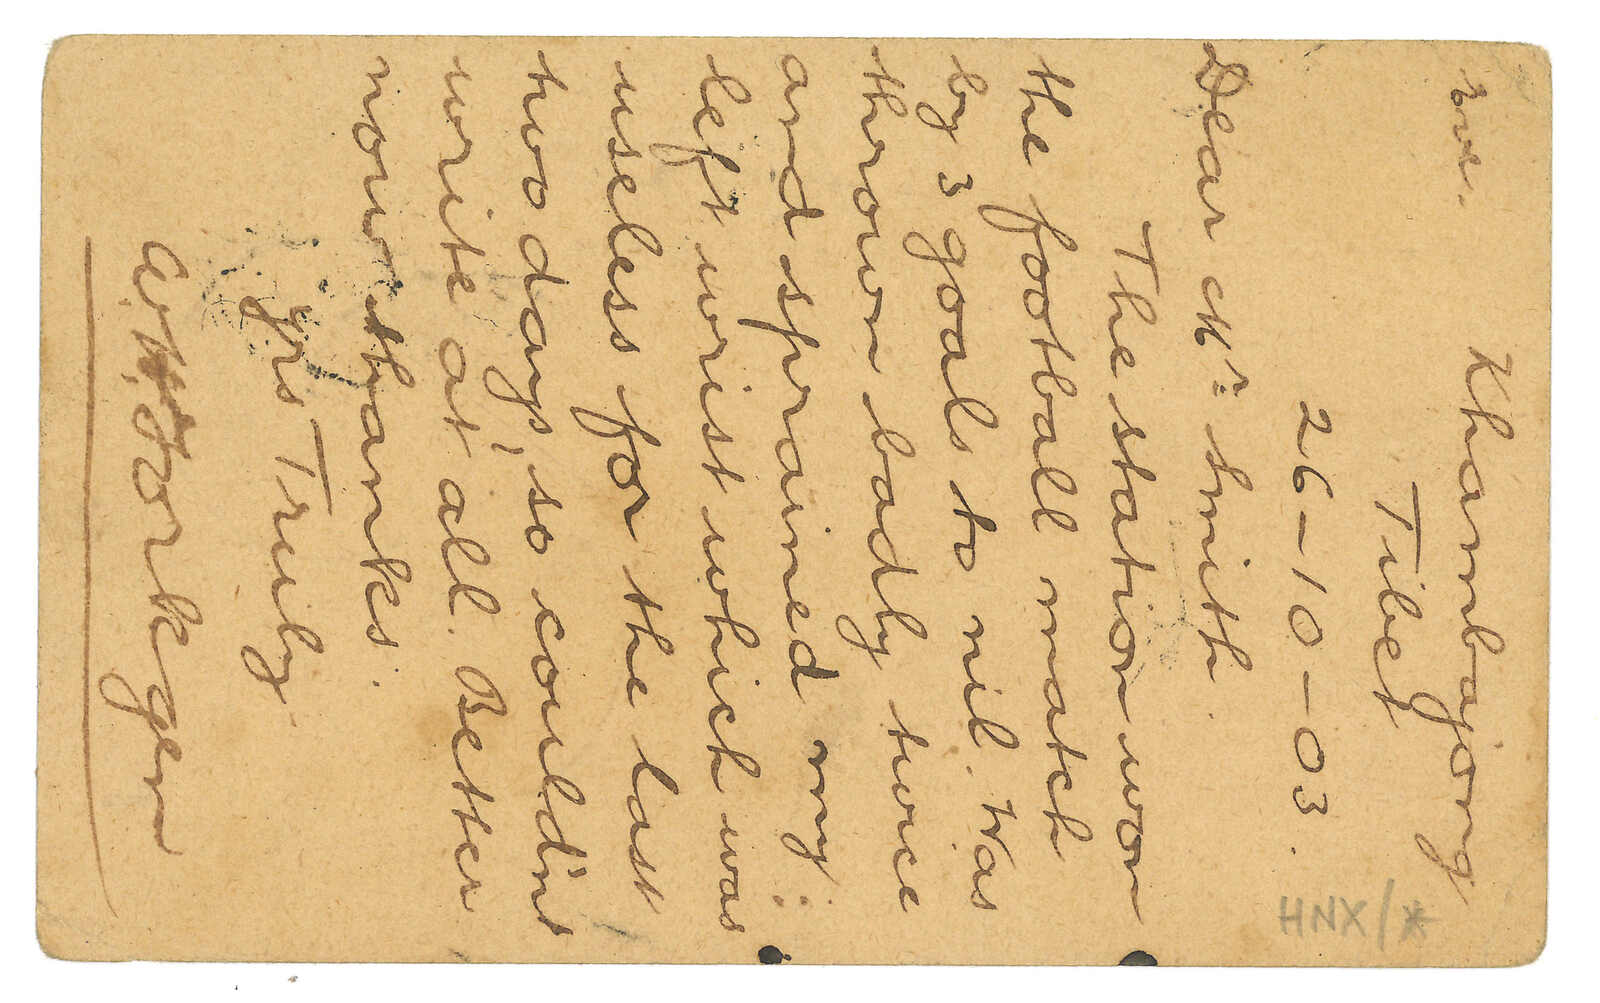 Khambajong
Tibet
26-10-03.
Dear Mr. Smith
The station won
the football match
by 3 goals to nil. Was
thrown badly twice
and sprained my
left wrist which was
useless for the last
two days, so could'nt
write at all. Better
now thanks.
Yrs Truly
HNX/*